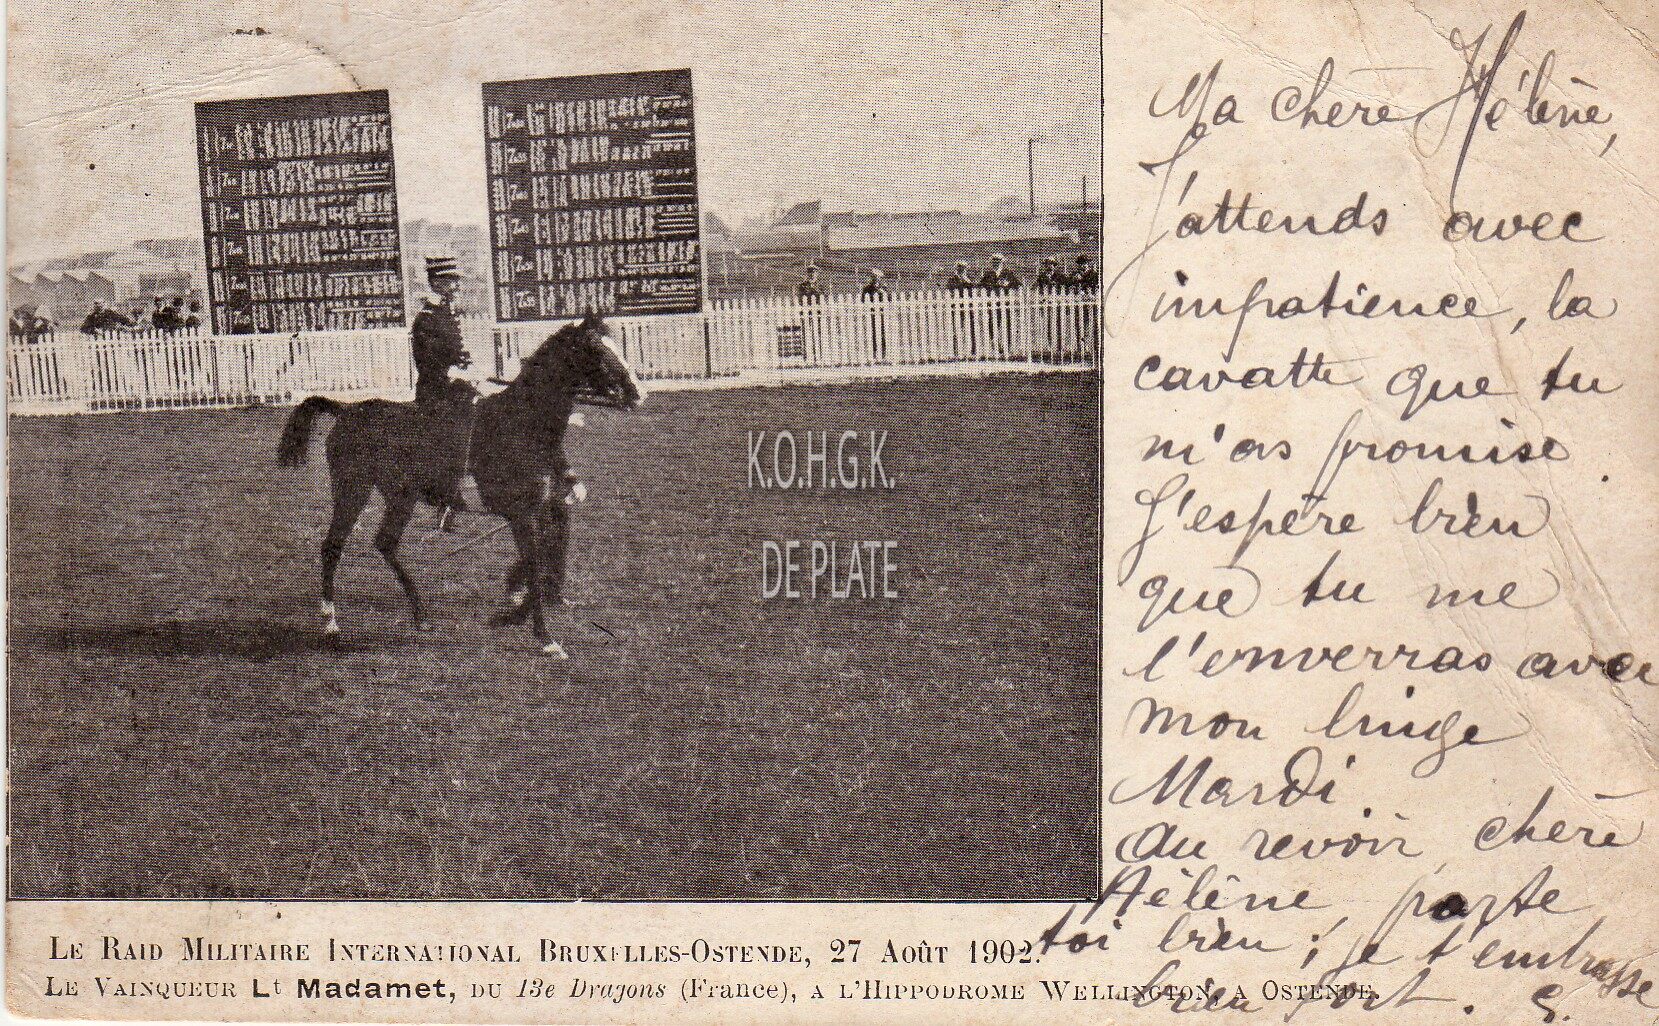 Ma chère Hélène,
J'attends avec
impatience, la
cavatte que tu
m'as promise.
J'espère bien
que tu me
l'enverras avec
mon linge
Mardi.
Au revoir, chère
Hélène, porte
toi bien ; je t'embrasse
bien fort. S.
K.O.H.G.K.
DE PLATE
LE RAID MILITAIRE INTERNATIONAL BRUXELLES-OSTENDE, 27 AOÛT 1902.
LE VAINQUEUR Lt Madamet, DU 13e Dragons (France), A L'HIPPODROME WELLINGTON, A OSTENDE.